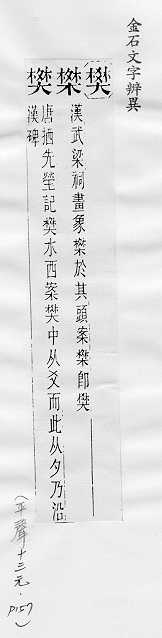 金石文字辨異
樊 桀 樊
漢武梁祠畫象桀於其頭案桀即樊
唐栖先塋記樊水西案樊中从爻而此从夕乃沿
漢碑
(平聲十三元.P157)